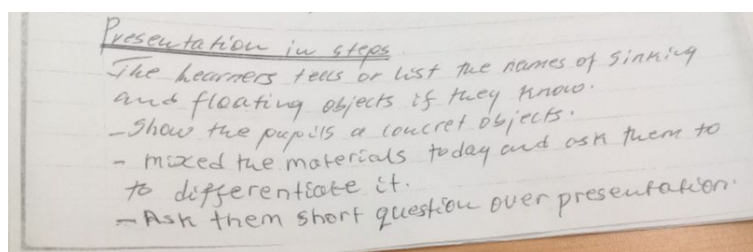 Presentation in steps
The hearners tells or list the names of sinking
and floating objects if they know.
- Show the pupils a concret objects.
- mixed the materials today and ask them to
to differentiate it.
- Ask them short question over presentation.